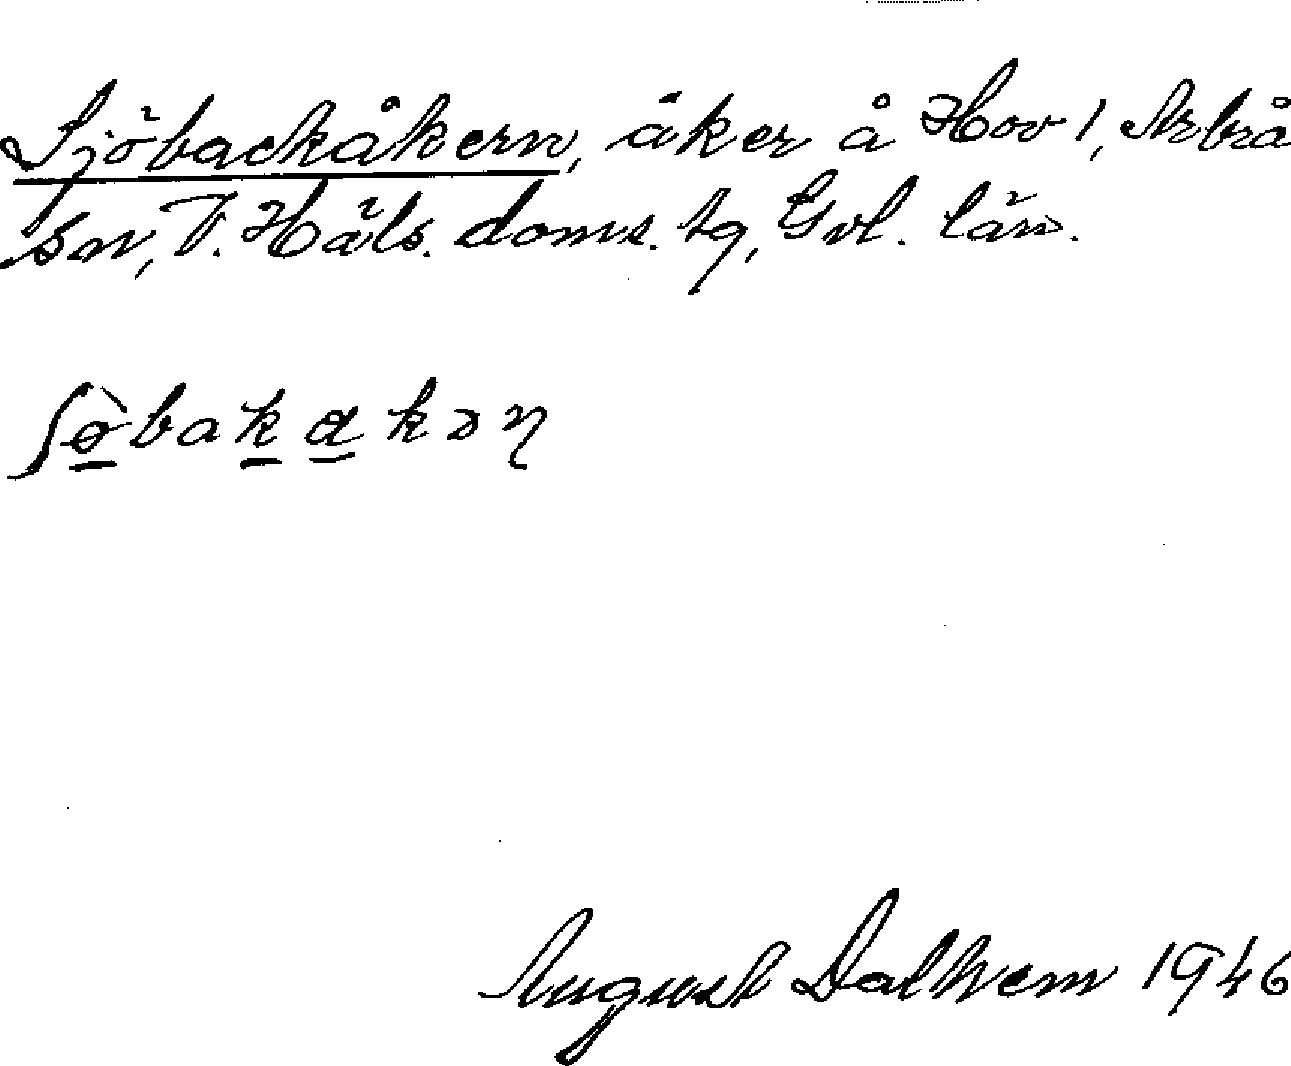 Sjöbackåkern, åker å Hov 1, Arbrå
sn, V. Häls. doms. tg, Gvl. län.
ʃò̲bak̲a̲kəŋ
August Dalhem 1946